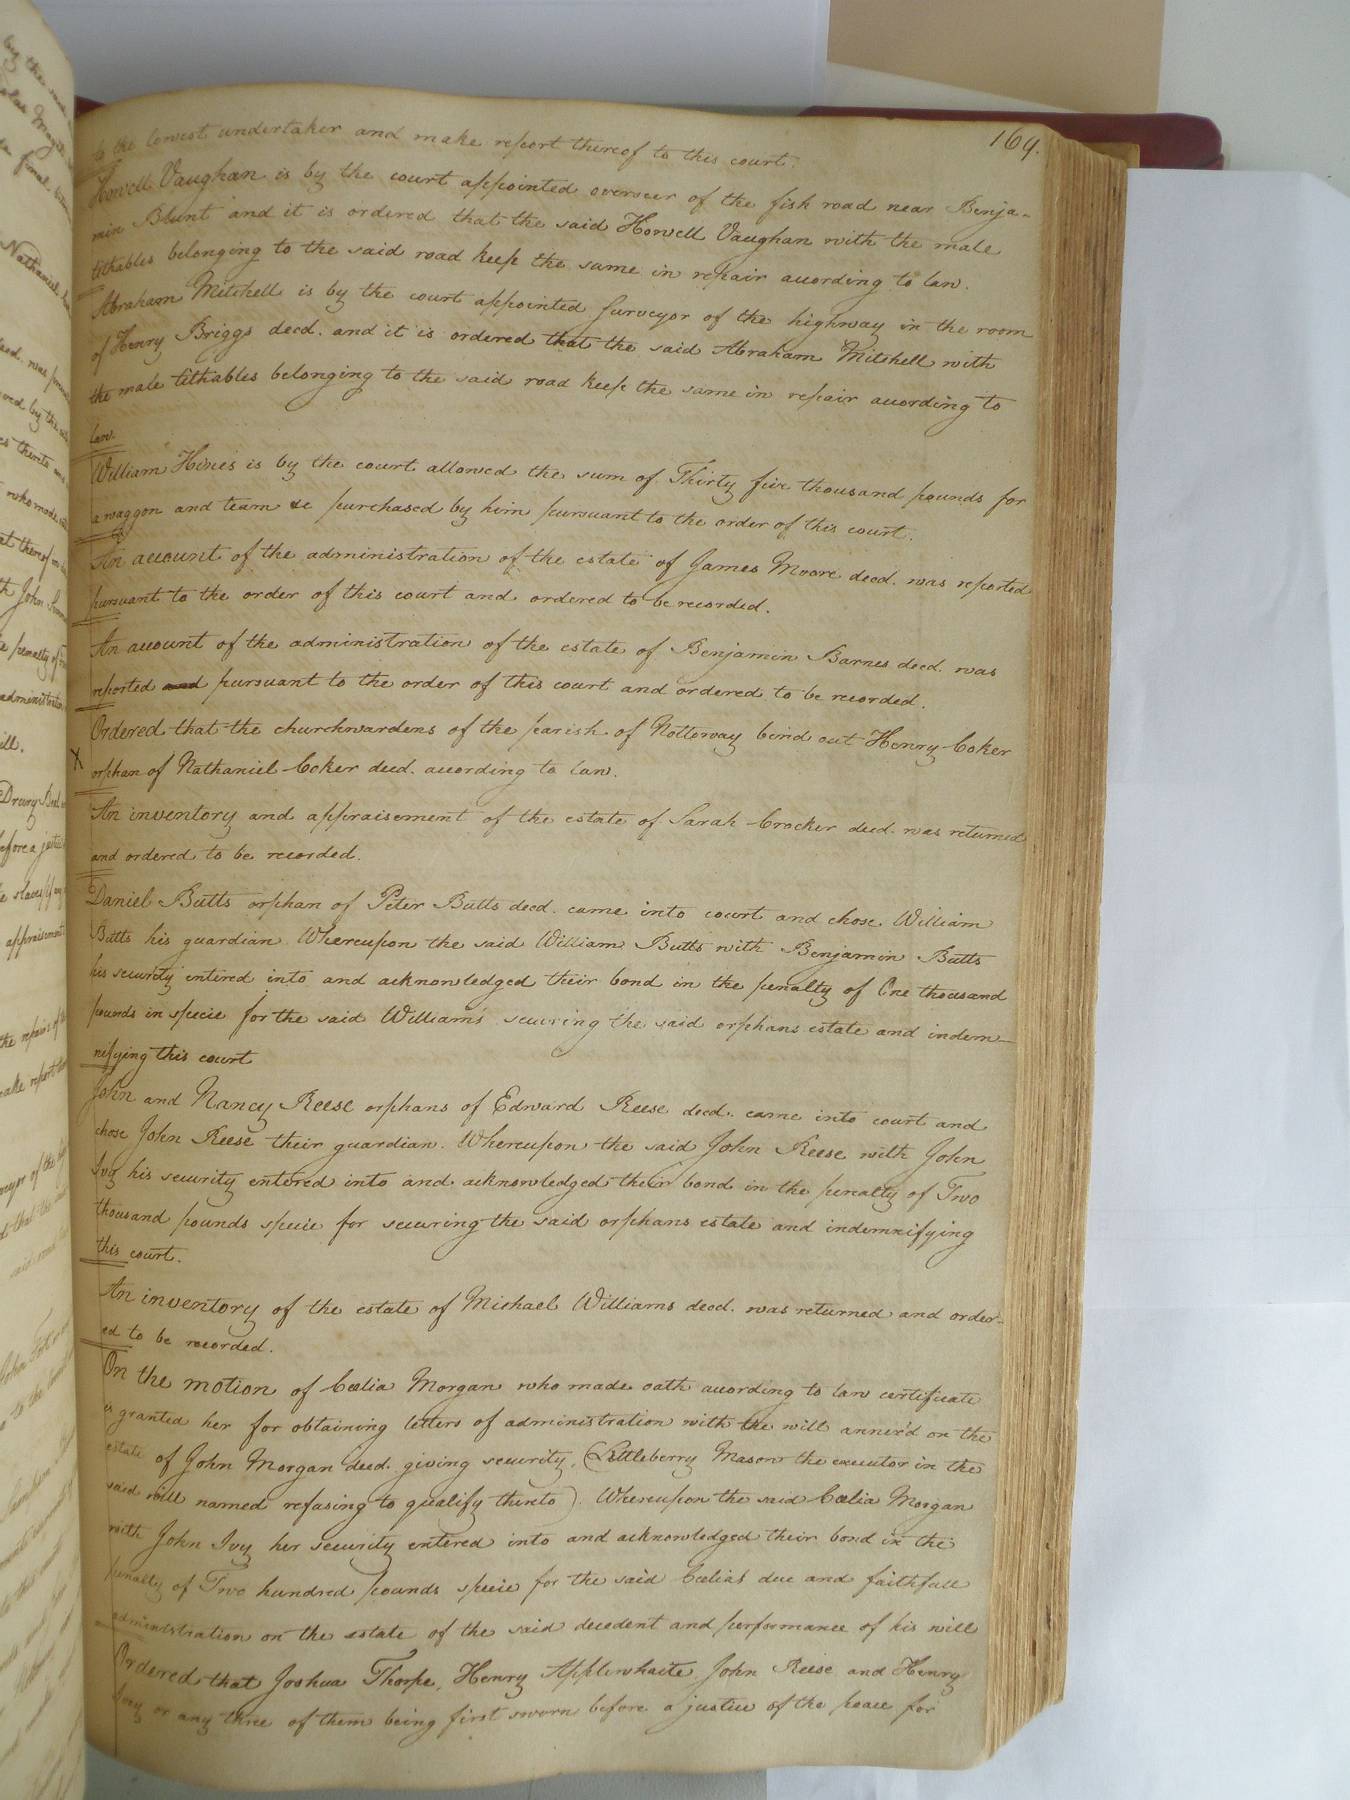 169.
to the lowest undertaker and make report thereof to this court.
Howell Vaughan is by the court appointed overseer of the fish road near Benja-
min Blunt and it is ordered that the said Howell Vaughan with the male
tithables belonging to the said road keep the same in repair according to law.
Abraham Mitchell is by the court appointed surveyor of the highway in the room
of Henry Briggs decd. and it is ordered that the said Abraham Mitchell with
the male tithables belonging to the said road keep the same in repair according to
law.
William Hines is by the court allowed the sum of Thirty five thousand pounds for
a waggon and team &c purchased by him pursuant to the order of this court.
An account of the administration of the estate of James Moore decd. was reported
pursuant to the order of this court and ordered to be recorded.
An account of the administration of the estate of Benjamin Barnes decd. was
reported and pursuant to the order of this court and ordered to be recorded.
Ordered that the churchwardens of the parish of Nottoway bind out Henry Coker
X orphan of Nathaniel Coker decd. according to law.
An inventory and appraisement of the estate of Sarah Crocker decd. was returned
and ordered to be recorded.
Daniel Butts orphan of Peter Butts decd. came into court and chose William
Butts his guardian. Whereupon the said William Butts with Benjamin Butts
his security entered into and acknowledged their bond in the penalty of One thousand
pounds in specie for the said William's securing the said orphans estate and indem-
nifying this court
John and Nancy Reese orphans of Edward Reese decd. came into court and
chose John Reese their guardian. Whereupon the said John Reese with John
Ivy his security entered into and acknowledged their bond in the penalty of Two
thousand pounds specie for securing the said orphans estate and indemnifying
this court.
An inventory of the estate of Michael Williams decd. was returned and order-
ed to be recorded.
On the motion of Cœlia Morgan who made oath according to law certificate
is granted her for obtaining letters of administration with the will annex'd on the
estate of John Morgan decd. giving security, (Littleberry Mason the executor in the
said will named refusing to qualify thereto). Whereupon the said Cœlia Morgan
with John Ivy her security entered into and acknowledged their bond in the
penalty of Two hundred pounds specie for the said Cœlia's due and faithfull
administration on the estate of the said decedent and performance of his will
Ordered that Joshua Thorpe, Henry Applewhaite, John Reese and Henry
Ivey or any three of them being first sworn before a justice of the peace for